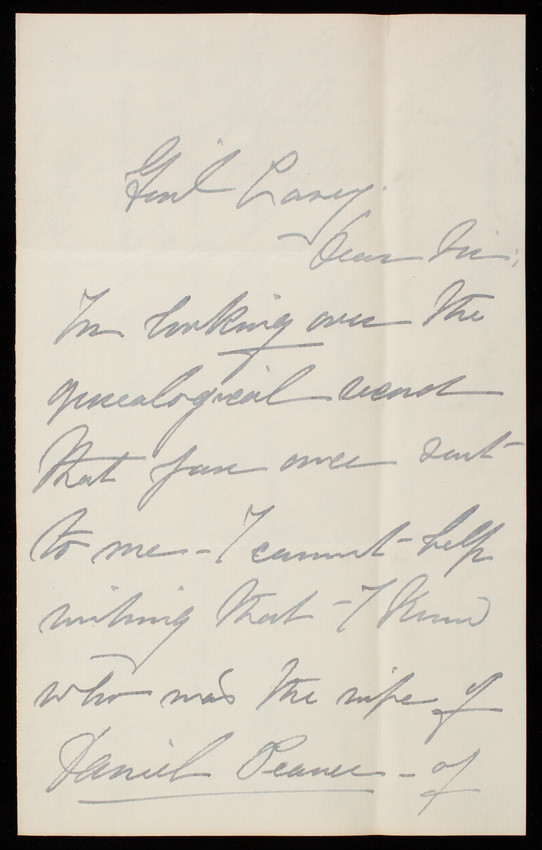 Genl Casey.
Dear Sir;
In looking over the
genealogical record
that you once sent
to me - I cannot help
writing that - I know
who was the wife of
Daniel Pearce - of